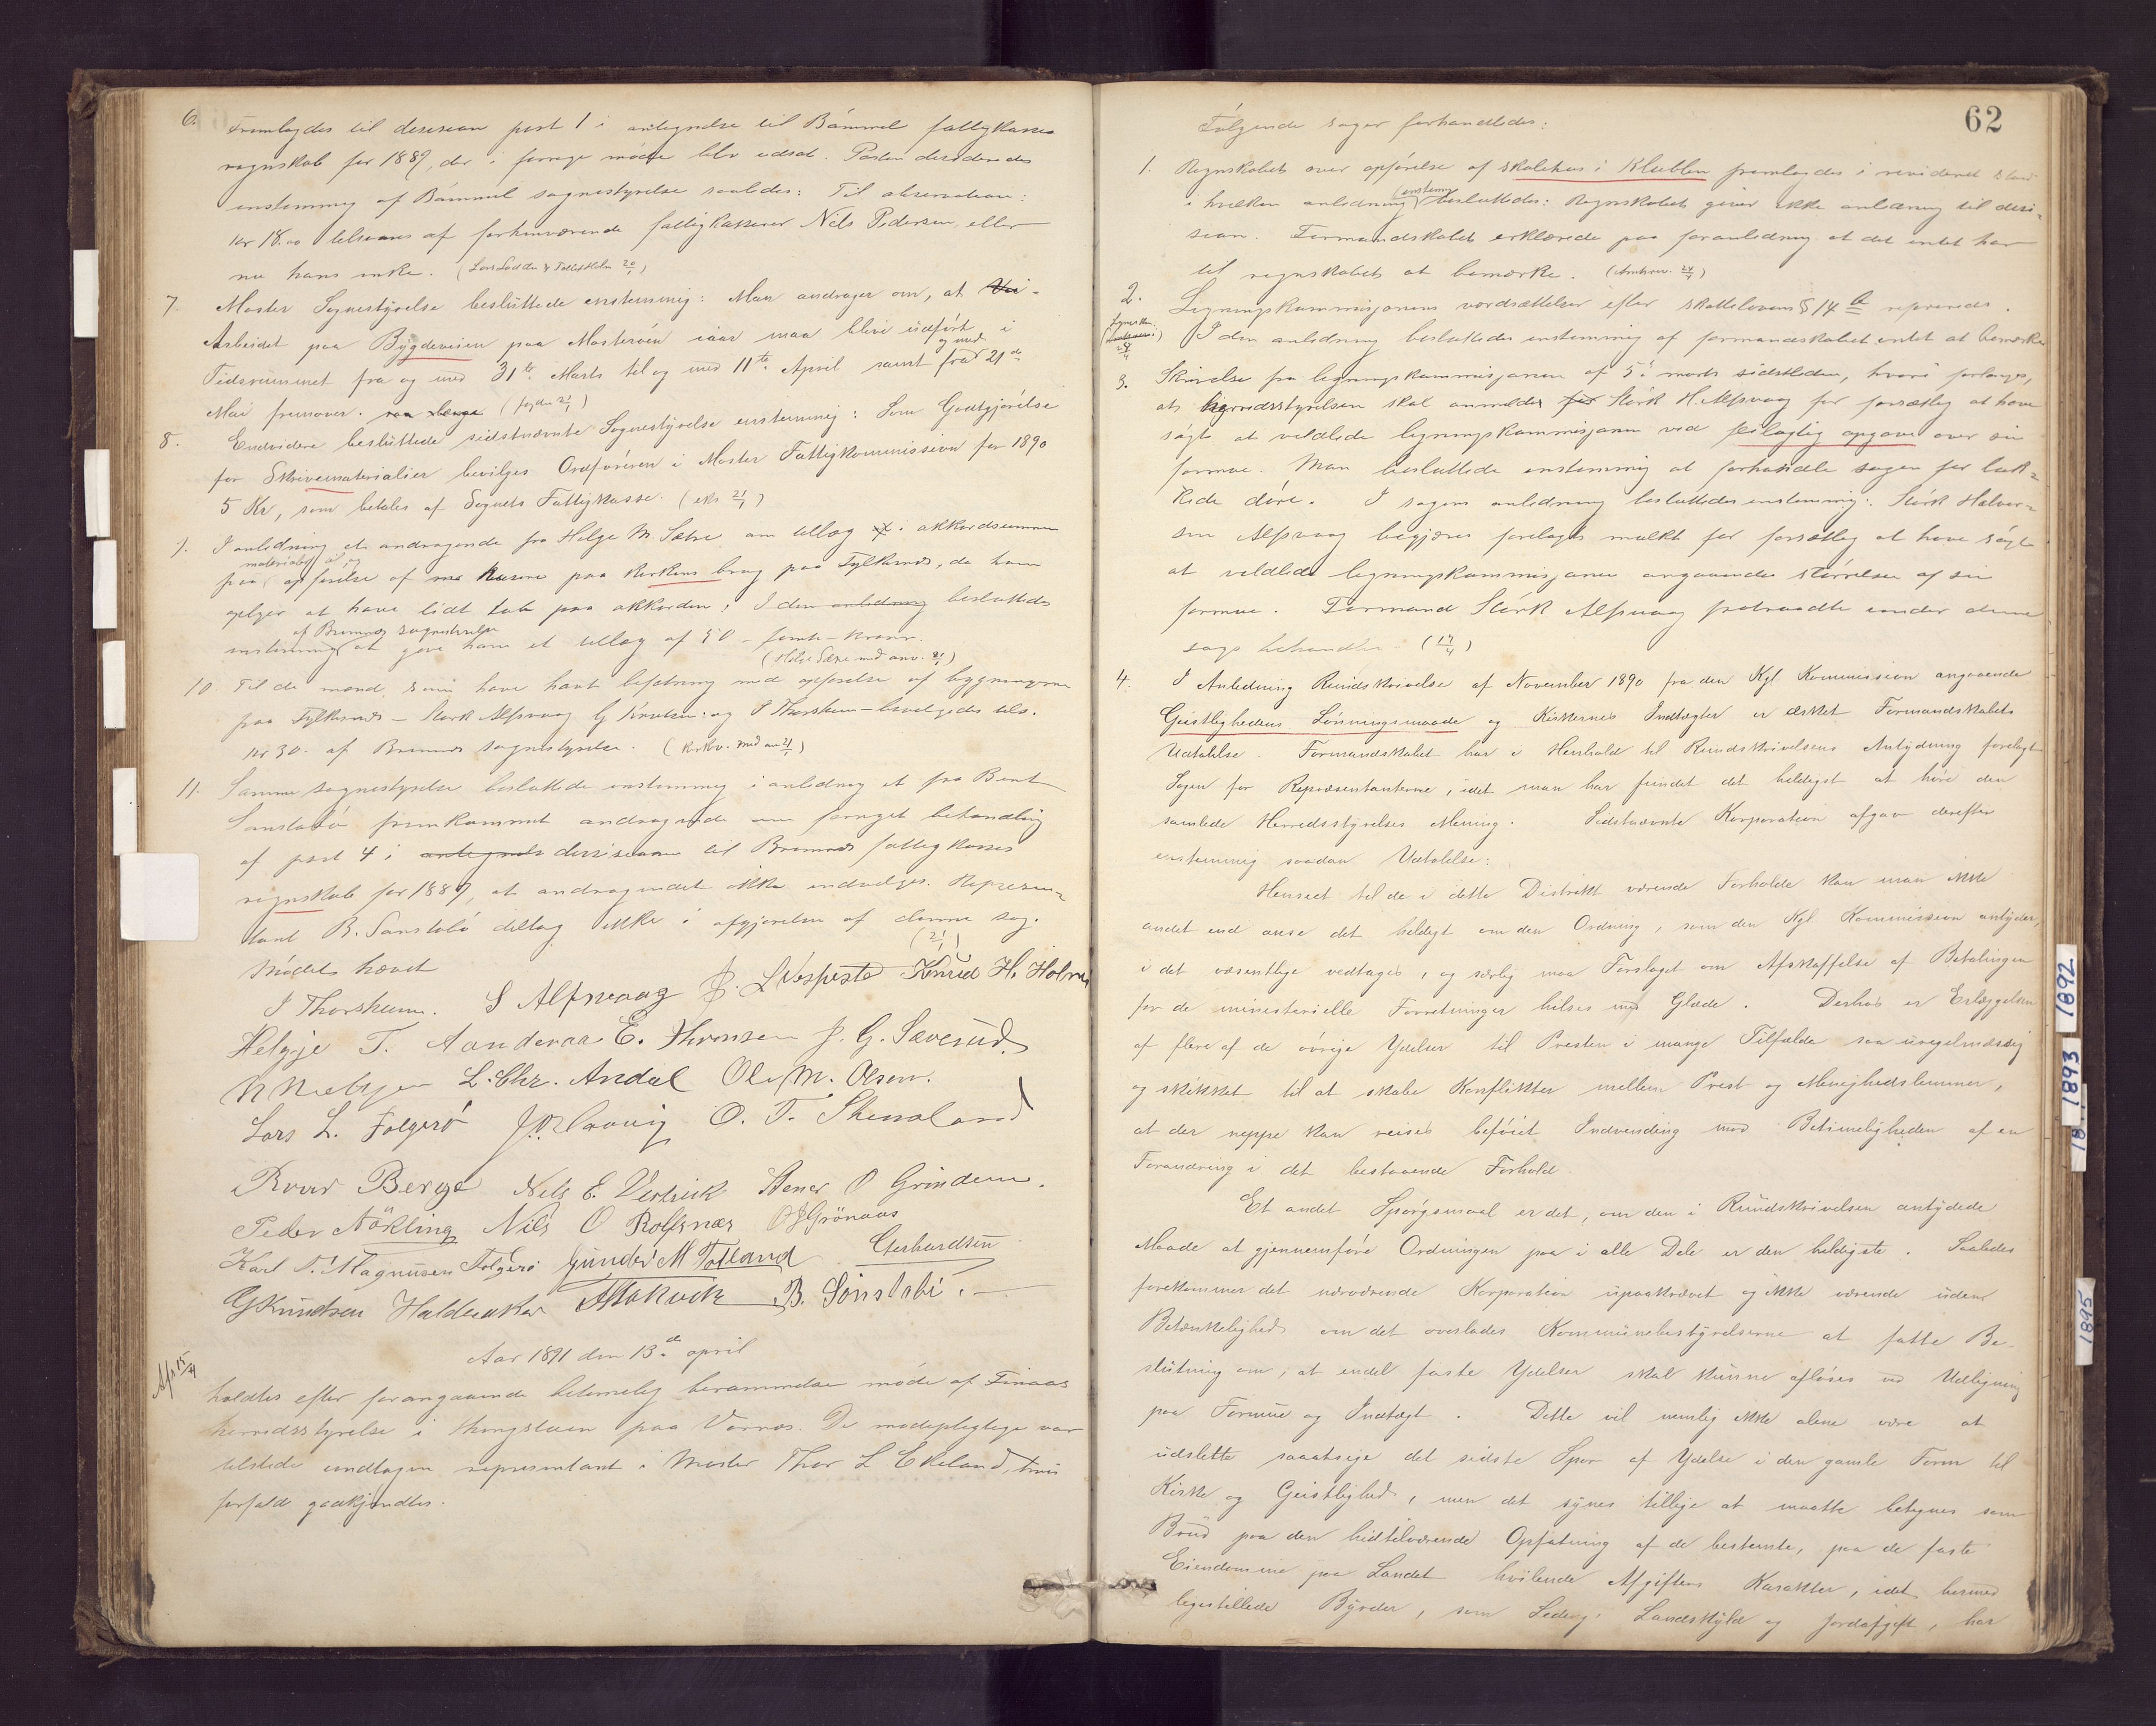 6. Fremlagdes til desision post 1 i antegnelse til Bömmel fattigkasses
regnskab for 1889, der i forrige möde blev udsat. Posten desideredes
enstemmig af Bömmel sognestyrelse saaledes: Til observation:
kr 18.00 tilsvares af forhenværende fattigkasserer Nils Pedersen, eller
nu hans enke. (Lars Ladde & Tollef Holm 20/1)
7. Moster Sognestyrelse besluttede enstemmig: Man andrager om, at Vei-
Arbeidet paa Bygdeveien paa Mosteröen iaar maa blive udfört i
Tidsrummet fra og med 31te Marts til og med 11te April samt fra og med 21de
Mai fremover. (fogden 21/1)
8. Endvidere besluttede sidstnævnte Sognestyrelse enstemmig: Som Godtgjörelse
for Skrivematerialier bevilges Ordföreren i Moster Fattigkommission for 1890
5 Kr, som betales af Sognets Fattigkasse. (eks 21/1)
9. I anledning et andragende fra Helge M. Sætre om tillæg i akkordsummen
paa materialer til og opförelse af husene paa Kirkens brug paa Fylkesnæs, da han
opgiver at have lidt tab paa akkorden; I den anledning besluttedes
enstemmig af Bremnes sognestyrelse at give han et tillæg af 50 – femti – kroner.
(Helge Sætre med anv. 21/1)
10. Til de mænd, som have havt befatning med opförelse af bygningerne
paa Fylkesnæs – Störk Alfsvaag G Knutsen og J Thorsheim – bevilgedes tils.
kr 30. af Bremnes sognestyrelse. (Kirkev. med anv 21/1)
11. Samme sognestyrelse besluttede enstemmig i anledning et fra Bernt
Sønstabö fremkommet andragende om fornyet behandling
af post 4 i antegnels desisionen til Bremnes fattigkasses
regnskab for 1889, at andragendet ikke indvilges. Represen-
tant B. Sønstabö deltog ikke i afgjörelse af denne sag.
(21/1)
Mödet hævet
J Thorsheim. S Alfsvaag J. L Vespestad Knud H. Holme
Helgje T. Aanderaa E. Thronsen J. G. Sæverud.
L. Chr. Andal Ole M. Olsen.
Lars L. Folgerö O. T. Steensland
Roar Berge Nils E. Vestvik Stener O Grindem.
Peder Nökling Nils O Rolfsnæs O J Grönaas
Karl T. Magnusen Folgerö Gunder M Totland Gerhardsen
G Knudsen Halderaker B. Sönstabö.
Afs 15/4
Aar 1891 den 13de april
holdtes efter forangaaende betimelig berammelse möde af Finaas
herredsstyrelse i thingstuen paa Vornæs. De mödepligtige var
tilstede undtagen representant i Moster Thor L Ekeland, hvis
forfald godkjendtes.
62
Fölgende sager forhandledes:
1. Regnskabet over opförelse af skolehus i Klubben fremlagdes i revideret stand
i hvilken anledning enstemmig besluttedes: Regnskabet giver ikke anledning til desi-
sion. Formandskabet erklærede paa foranledning at det intet har
til regnskabet at bemærke. (24/4)
2. Ligningskommisjonens værdsættelser efter skattelovens § 14 b refereredes.
I den anledning besluttedes enstemmig af formandskabet intet at bemærke
3. Skrivelse fra ligningskommisjonen af 5te marts sidstleden, hvori forlanges,
at herredsstyrelsen skal anmelde Störk H. Alfsvaag for forsætlig at have
sögt at vildlede ligningskommisjonen ved feilagtig opgave over sin
formue. Man besluttede enstemmig at forhandle sagen for luk-
kede döre. I sagens anledning besluttedes enstemmig: Störk Halvor-
sen Alfsvaag begjæres forelagt mulkt for forsætlig at have sögt
at vildlede ligningskommisjonen angaaende störrelsen af sin
formue. Formand Störk Alfsvaag fratraadte under denne
sags behandling. (17/4)
4. I Anledning Rundskrivelse af November 1890 fra den Kgl. Kommission angaaende
Geistlighedens Lönningsmaade og Kirkernes Indtægter er æsket Formandskabets
Udtalelse. Formandskabet har i Henhold til Rundskrivelsens Antydning forelagt
Sagen for Repræsentanterne, idet man har fundet det heldigst at höre den
samlede Herredsstyrelses Mening. Sidstnævnte Korporation afgav derefter
enstemmig saadan Udtalelse:
Henseet til de i dette Distrikt værende Forholde kan man ikke
andet end anse det heldigt om den Ordning, som den Kgl. Kommission antyder,
i det væsentlige vedtages, og særlig maa Forslaget om Afskaffelse af Betalingen
for de ministerielle Forretninger hilses med Glæde. Derhos er Erlæggelsen
af flere af de övrige Ydelser til Presten i mange Tilfælde saa uregelmæssig
og skikket til at skabe Konflikter mellem Prest og Menighedslemmer,
at der neppe kan reises beföiet Indvending mod Betimeligheden af en
Forandring i det bestaaende Forhold.
Et andet Spörgsmaal er det, om den i Rundskrivelsen antydede
Maade at gjennemföre Ordningen paa i alle Dele er den heldigste. Saaledes
forekommer det nærværende Korporation upaakrævet og ikke værende uden
Betænkelighed om det overlades Kommunebestyrelserne at fatte Be-
slutning om, at endel faste Ydelser skal kunne aflöses ved Udligning
paa Formue og Indtægt. Dette vil nemlig ikke alene være at
udslette saaatsige det sidste Spor af Ydelse i den gamle Form til
Kirke og Geistlighed, men det synes tillige at maatte betegnes som
Brud paa den hidtilværende Opfatning af de bestemte, paa de faste
Eiendomme paa Landet hvilende Afgifters Karakter, idet hermed
ligestillede Byrder, som Leding, Landskyld og Jordafgift, har
1892
1893
18
1895